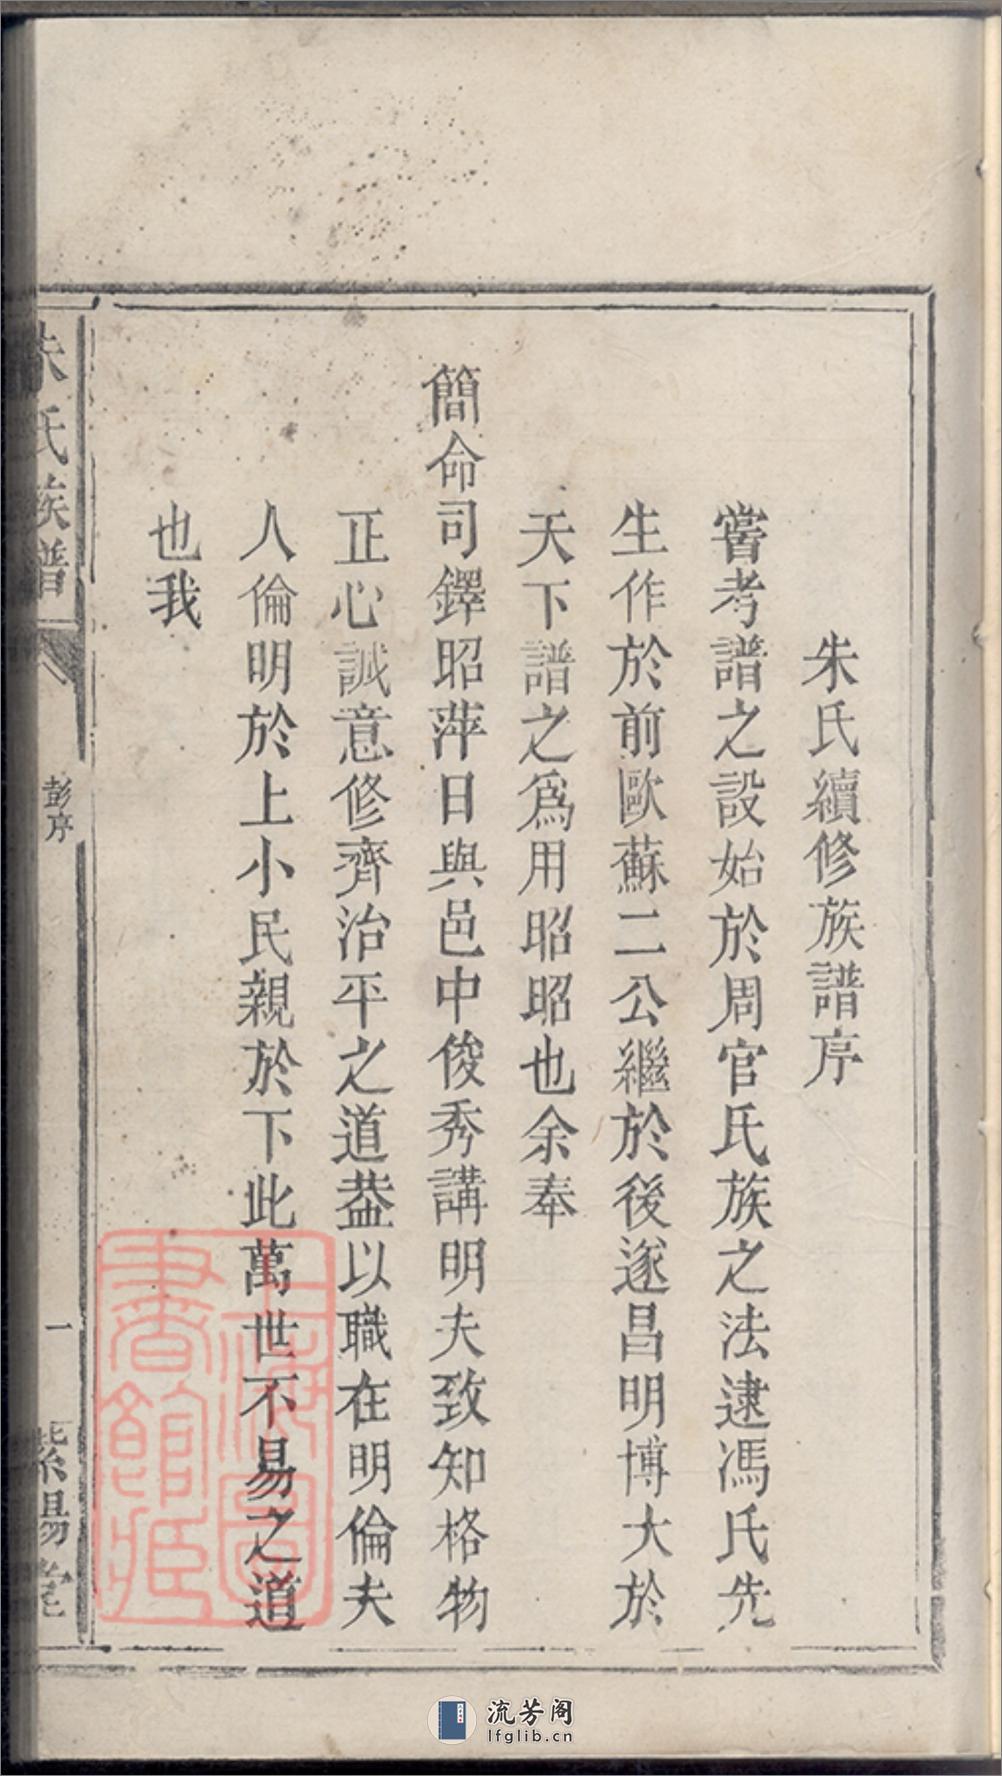 朱氏續修族譜序
嘗考譜之設始於周官氏族之法逮馮氏先
生作於前歐蘇二公繼於後遂昌明博大於
天下譜之爲用昭昭也余奉
簡命司鐸昭萍日與邑中俊秀講明夫致知格物
正心誠意修齊治平之道葢以職在明倫夫
人倫明於上小民親於下此萬世不易之道
也我
朱氏族譜
彭序
一
紫陽堂
上海圖
書館藏
流芳阁
lfglib.cn